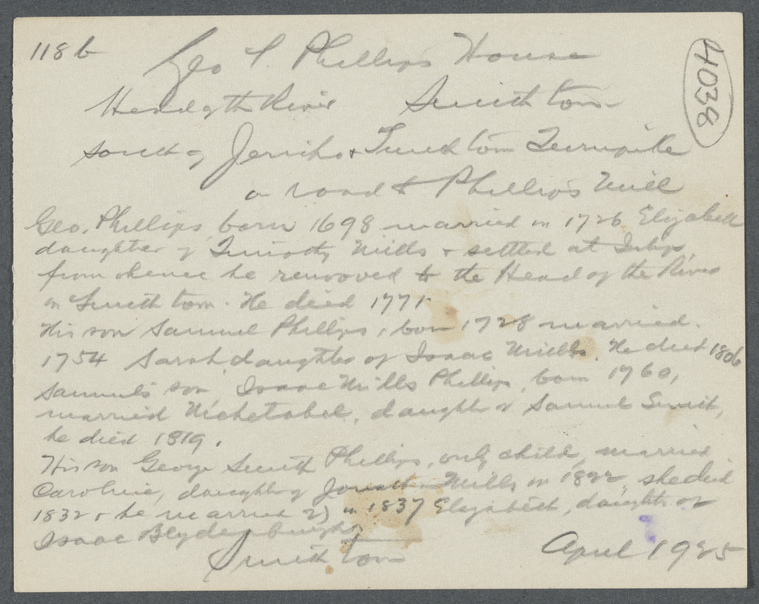 118b
4038
Geo S. Phillips House
Head of the River Smithtown
south of Jericho & Smithtown Turnpike
on road to Phillips Mill
Geo. Phillips, born 1698 married in 1726 Elizabeth
daughter of Timothy Mills & settled at Islip
from whence he removed to the Head of the River
in Smithtown. He died 1771.
His son Samuel Phillips, born 1728 married.
1754 Sarah, daughter of Isaac Mills. He died 1806
Samuel's son Isaac Mills Phillips, born 1760,
married Mehetabel, daughter of Samuel Smith,
he died 1819.
His son George Smith Phillips, only child, married
Caroline, daughter of Mills in 1822, she died
1832 & he married 2) in 1837 Elizabeth, daughter of
Isaac Blydenburgh.
Smithtown April 1925